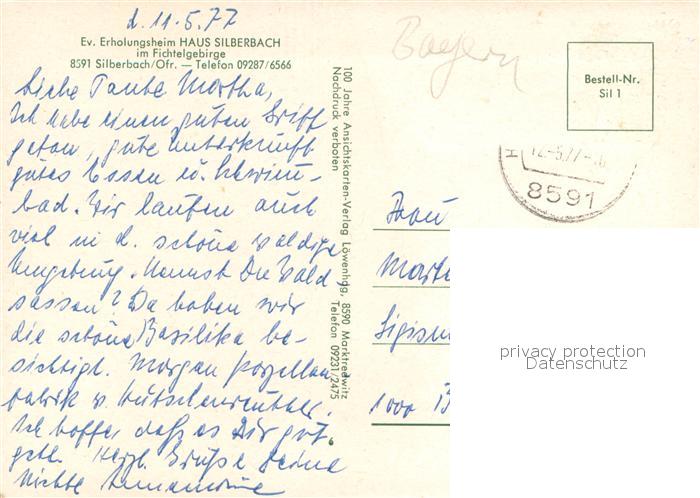 d. 11.5.77
Ev. Erholungsheim HAUS SILBERBACH
im Fichtelgebirge
8591 Silberbach/Ofr. — Telefon 09287/6566
Liebe Tante Martha,
Ich habe einen guten Griff
getan, gute Unterkunft
gutes Essen u. Schwimm-
bad. Wir laufen auch
viel in d. schöne waldige
Umgebung. Kennst Du Wald
sassen? Da haben wir
die schöne Basilika be-
sichtigt. Morgen Porzellan
fabrik v. Hutschenreuther.
Ich hoffe, daß es Dir gut
geht. Herzl. Grüße Deine
Nichte Annemarie
100 Jahre Ansichtskarten-Verlag Löwenhag, 8590 Marktredwitz
Nachdruck verboten Telefon 09231/2475
Bayern
Bestell-Nr.
Sil 1
12.-5.77
8591
Frau
Marth
Sigism
1000 B
privacy protection
Datenschutz